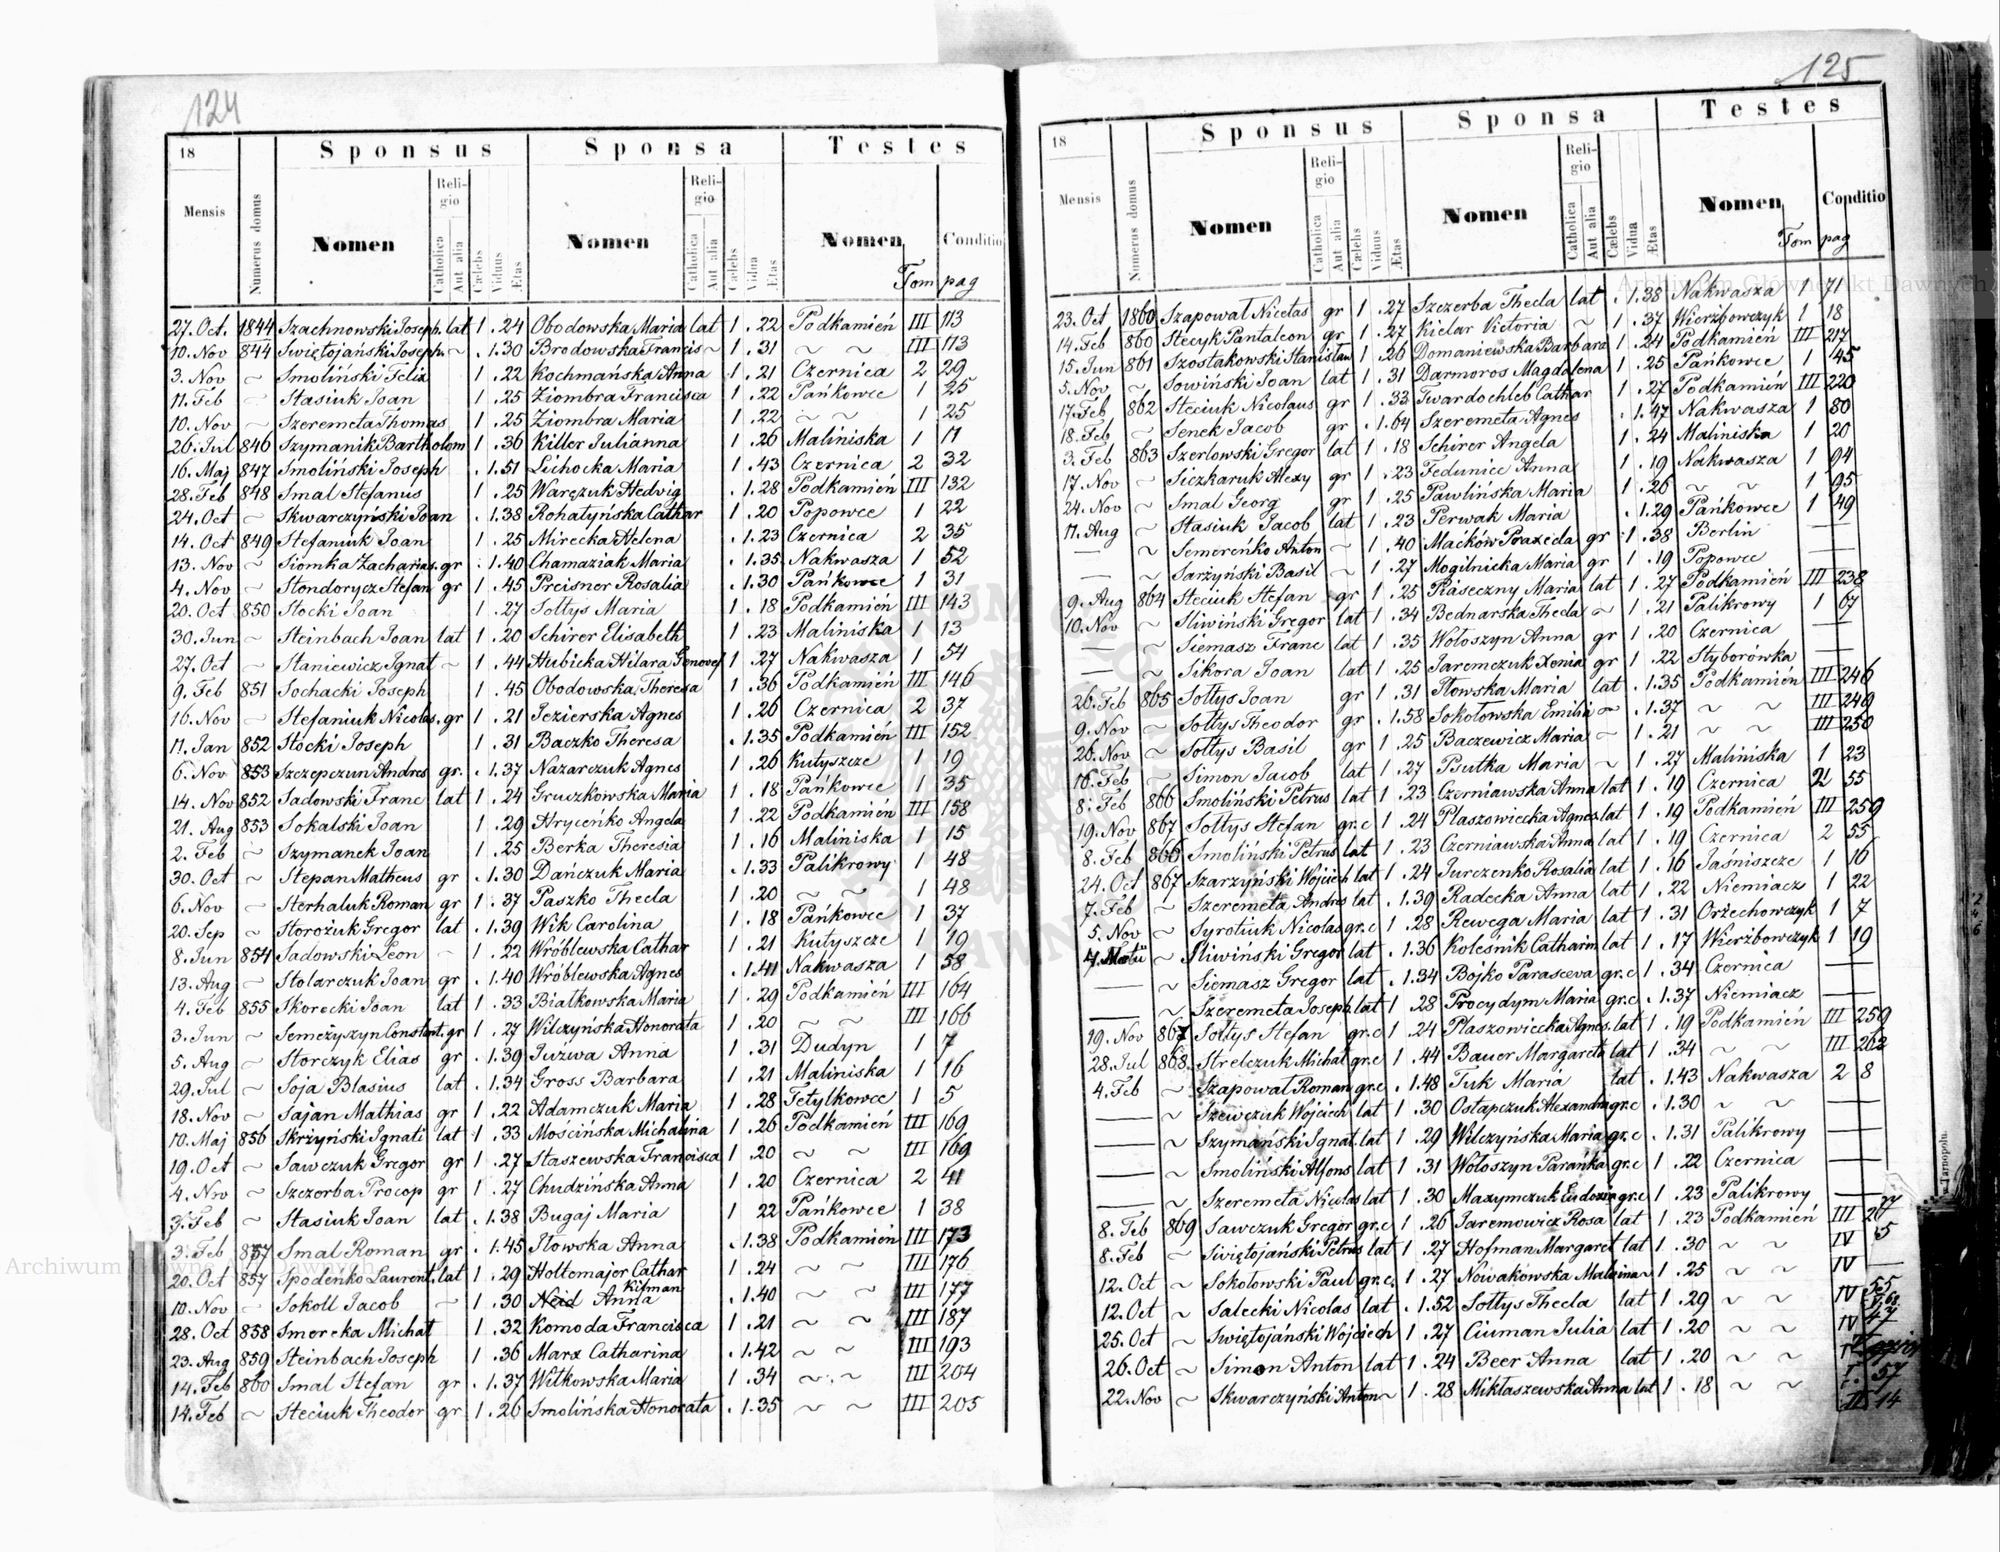 124
18 Sponsus Sponsa Testes
Mensis Numerus domus Nomen Religio Catholica Aut alia Cælebs Viduus Ætas Nomen Religio Catholica Aut alia Cælebs Vidua Ætas Nomen Conditio
Tom pag
27. Oct. 1844 Szachnowski Joseph. lat 1 .24 Obodowska Maria lat 1 .22 Podkamień III 113
10. Nov 844 Świętojański Joseph. ~ . 1.30 Brodowska Francis ~ 1 .31 ~ ~ III 113
3. Nov ~ Smoliński Felix 1 .22 Kochmańska Anna 1 .21 Czernica 2 29
11. Feb ~ Stasiuk Joan 1 .25 Ziombra Francisca 1 .22 Pańkowce 1 25
10. Nov ~ Szeremeta Thomas 1 .25 Ziombra Maria 1 .22 ~ ~ 1 25
26. Jul 846 Szymanik Bartholom 1 .36 Killer Julianna 1 .26 Maliniska 1 11
16. Maj 847 Smoliński Joseph . 1.51 Lichocka Maria 1 .43 Czernica 2 32
28. Feb 848 Smal Stefanus 1 .25 Waręzuk Hedvig . 1.28 Podkamień III 132
24. Oct ~ Skwarczyński Joan . 1.38 Rohatyńska Cathar 1 .20 Popowce 1 22
14. Oct 849 Stefaniuk Joan 1 .25 Mirecka Helena . 1.23 Czernica 2 35
13. Nov ~ Siomka Zacharias. gr . 1.40 Chamaziak Maria . 1.35 Nakwasza 1 52
4. Nov ~ Stondorycz Stefan gr 1 .45 Preisner Rosalia . 1.30 Pańkowce 1 31
20. Oct 850 Stocki Joan 1 .27 Sołtys Maria 1 .18 Podkamień III 143
30. Jun ~ Steinbach Joan lat 1 .20 Schirer Elisabeth 1 .23 Maliniska 1 13
27. Oct ~ Staniewicz Ignat ~ 1 .44 Hubicka Hilara Genovef 1 .27 Nakwasza 1 54
9. Feb 851 Sochacki Joseph 1 .45 Obodowska Theresa 1 .36 Podkamień III 146
16. Nov ~ Stefaniuk Nicolas. gr 1 .21 Jezierska Agnes 1 .26 Czernica 2 37
11. Jan 852 Stocki Joseph 1 .31 Baczko Theresa . 1.35 Podkamień III 152
6. Nov 853 Szczepczun Andres gr. . 1.37 Nazarczuk Agnes 1 .26 Kutyszcze 1 19
14. Nov 852 Sadowski Franc lat 1 .24 Gruczkowska Maria 1 .18 Pańkowce 1 35
21. Aug 853 Sokalski Joan 1 .29 Hryceńko Angela 1 .22 Podkamień III 158
2. Feb ~ Szymanek Joan 1 .25 Berka Theresia 1 .16 Maliniska 1 15
30. Oct ~ Stepan Matheus gr . 1.30 Dańczuk Maria . 1.33 Palikrowy 1 48
6. Nov ~ Sterhaluk Roman gr 1 .37 Paszko Thecla 1 .20 ~ ~ 1 48
20. Sep ~ Storożuk Gregor lat . 1.39 Wik Carolina 1 .18 Pańkowce 1 37
8. Jun 854 Sadowski Leon ~ 1 .22 Wróblewska Cathar 1 .21 Kutyszcze 1 19
13. Aug ~ Stolarczuk Joan gr . 1.40 Wróblewska Agnes . 1.41 Nakwasza 1 58
4. Feb 855 Skorecki Joan lat 1 .33 Białkowska Maria 1 .29 Podkamień III 164
3. Jun ~ Semeżyszyn Constant. gr 1 .27 Wilczyńska Honorata 1 .20 ~ ~ III 166
5. Aug ~ Storczyk Elias gr . 1.39 Juzwa Anna 1 .31 Dudyn 1 7
29. Jul ~ Soja Blasius lat . 1.34 Gross Barbara 1 .21 Maliniska 1 16
18. Nov ~ Sajan Mathias gr 1 .22 Adamczuk Maria 1 .28 Tetylkowce 1 5
10. Maj 856 Skrzyński Ignati lat 1 .33 Mościńska Michalina 1 .26 Podkamień III 169
19. Oct ~ Sawczuk Gregor gr 1 .27 Staszewska Francisca 1 .20 ~ ~ III 169
4. Nov ~ Szczerba Procop gr 1 .27 Chudzińska Anna 1 .20 Czernica 2 41
3. Feb ~ Stasiuk Joan lat . 1.38 Bugaj Maria 1 22 Pańkowce 1 38
3. Feb 857 Smal Roman gr . 1.45 Iłowska Anna . 1.38 Podkamień III 173
20. Oct 857 Spodeńko Laurent. lat 1 .29 Holtemajer Cathar 1 .24 ~ ~ III 176
10. Nov ~ Sokoll Jacob ~ 1 .30 Neid Kifman Anna . 1.40 ~ ~ III 177
28. Oct 858 Smereka Michał 1 .32 Komoda Francisca 1 .21 ~ ~ III 187
23. Aug 859 Steinbach Joseph 1 .36 Marx Catharina . 1.42 ~ ~ III 193
14. Feb 860 Smal Stefan gr . 1.37 Witkowska Maria 1 .34 ~ ~ III 204
14. Feb ~ Steciuk Theodor gr 1 .26 Smolińska Honorata . 1.35 ~ ~ III 205
125
18 Sponsus Sponsa Testes
Mensis Numerus domus Nomen Religio Catholica Aut alia Cælebs Viduus Ætas Nomen Religio Catholica Aut alia Cælebs Vidua Ætas Nomen Conditio
Tom pag
23. Oct 1860 Szapował Nicolas gr 1 .27 Szczerba Thecla lat . 1.38 Nakwasza 1 71
14. Feb 860 Stecyk Pantaleon gr 1 .27 Kielar Victoria ~ 1 .37 Wierzbowczyk 1 18
15. Jun 861 Szostakowski Stanisław 1 .26 Domaniewska Barbara 1 .24 Podkamień III 217
5. Nov ~ Sowiński Joan lat 1 .31 Darmoros Magdalena 1 .25 Pańkowce 1 45
17. Feb 862 Steciuk Nicolaus gr 1 .33 Twardochleb Cathar 1 .27 Podkamień III 220
18. Feb ~ Senek Jacob gr . 1.64 Szeremeta Agnes . 1.47 Nakwasza 1 80
3. Feb 863 Szerlowski Gregor lat 1 .18 Schirer Angela 1 .24 Maliniska 1 20
17. Nov ~ Siczkaruk Alexy gr 1 .23 Fedunice Anna 1 .19 Nakwasza 1 94
24. Nov ~ Smal Georg gr 1 .25 Pawlińska Maria 1 .26 ~ ~ 1 95
17. Aug ~ Stasiuk Jacob lat 1 .23 Perwak Maria . 1.29 Pańkowce 1 49
— ~ Semereńko Anton ~ 1 .40 Maćków Praxeda gr . 1.38 Berlin —
— ~ Sarżyński Basil ~ 1 .27 Mogilnicka Maria gr 1 .19 Popowce —
9. Aug 864 Steciuk Stefan gr 1 .25 Piaseczny Maria lat 1 .27 Podkamień III 238
10. Nov ~ Śliwiński Gregor lat 1 .34 Bednarska Thecla ~ 1 .21 Palikrowy 1 67
— ~ Siemasz Franc lat 1 .35 Wołoszyn Anna gr 1 .20 Czernica —
— ~ Sikora Joan lat 1 .25 Jaremczuk Xenia gr 1 .22 Styborówka —
26. Feb 865 Sołtys Joan gr 1 .31 Iłowska Maria lat . 1.35 Podkamień III 246
9. Nov ~ Sołtys Theodor gr . 1.58 Sokołowska Emilia ~ . 1.37 ~ ~ III 249
26. Nov ~ Sołtys Basil gr 1 .25 Baczewicz Maria ~ 1 .21 ~ ~ III 250
16. Feb ~ Simon Jacob lat 1 .27 Psutka Maria ~ 1 .27 Maliniska 1 23
8. Feb 866 Smoliński Petrus lat 1 .23 Czerniawska Anna lat 1 .19 Czernica 2 55
19. Nov 867 Sołtys Stefan gr.c 1 .24 Płaszowiecka Agnes lat 1 .19 Podkamień III 259
8. Feb 866 Smoliński Petrus lat 1 .23 Czerniawska Anna lat 1 .19 Czernica 2 55
24. Oct 867 Szarzyński Wojciech lat 1 .24 Jurczenko Rosalia lat 1 .16 Jaśniszcze 1 16
7. Feb ~ Szeremeta Andres lat . 1.39 Radecka Anna lat 1 .22 Niemiacz 1 22
5. Nov ~ Syrotiuk Nicolas gr.c 1 .28 Rewega Maria lat 1 .31 Orżechowczyk 1 7
~ Śliwiński Gregor lat . 1.36 Koleśnik Catharin lat 1 .17 Wierżbowczyk 1 19
— ~ Siemasz Gregor lat . 1.34 Bojko Parasceva gr.c 1 .34 Czernica —
— ~ Szeremeta Joseph. lat 1 .28 Procydym Maria gr.c . 1.37 Niemiacz —
19. Nov 867 Sołtys Stefan gr.c 1 .24 Płaszowiecka Agnes. lat 1 .19 Podkamień III 259
28. Jul 868. Strelczuk Michał gr.c 1 .44 Bauer Margareta lat 1 .34 ~ ~ III 262
4. Feb ~ Szapował Roman gr.c . 1.48 Tuk Maria lat . 1.43 Nakwasza 2 8
— ~ Szewczuk Wojciech lat 1 .30 Ostapczuk Alexandra gr.c . 1.30 ~ ~ —
— ~ Szymański Ignat. lat 1 .29 Wilczyńska Maria gr.c . 1.31 Palikrowy —
— ~ Smoliński Alfons lat 1 .31 Wołoszyn Parańka gr.c 1 .22 Czernica —
— ~ Szeremeta Nicolas lat 1 .30 Maxymczuk Eudoxia gr.c 1 .23 Palikrowy —
8. Feb 869 Sawczuk Gregor gr.c 1 .26 Jaremowicz Rosa lat 1 .23 Podkamień III 267
8. Feb ~ Świętojański Petrus lat 1 .27 Hofman Margaret lat 1 .30 ~ ~ IV 5
12. Oct ~ Sokołowski Paul gr.c. 1 .27 Nowakowska Malwina ~ 1 .25 ~ ~ IV —
12. Oct ~ Salecki Nicolas lat . 1.52 Sołtys Thecla lat 1 .29 ~ ~ IV 55
25. Oct ~ Świętojański Wojciech 1 .27 Ciuman Julia lat 1 .20 ~ ~ IV 47
26. Oct ~ Simon Anton lat 1 .24 Beer Anna lat 1 .20 ~ ~
22. Nov ~ Skwarczyński Anton ~ 1 .28 Mikłaszewska Anna lat 1 .18 ~ ~ 57
14
Archiwum Główne Akt Dawnych
Archiwum Główne Akt Dawnych